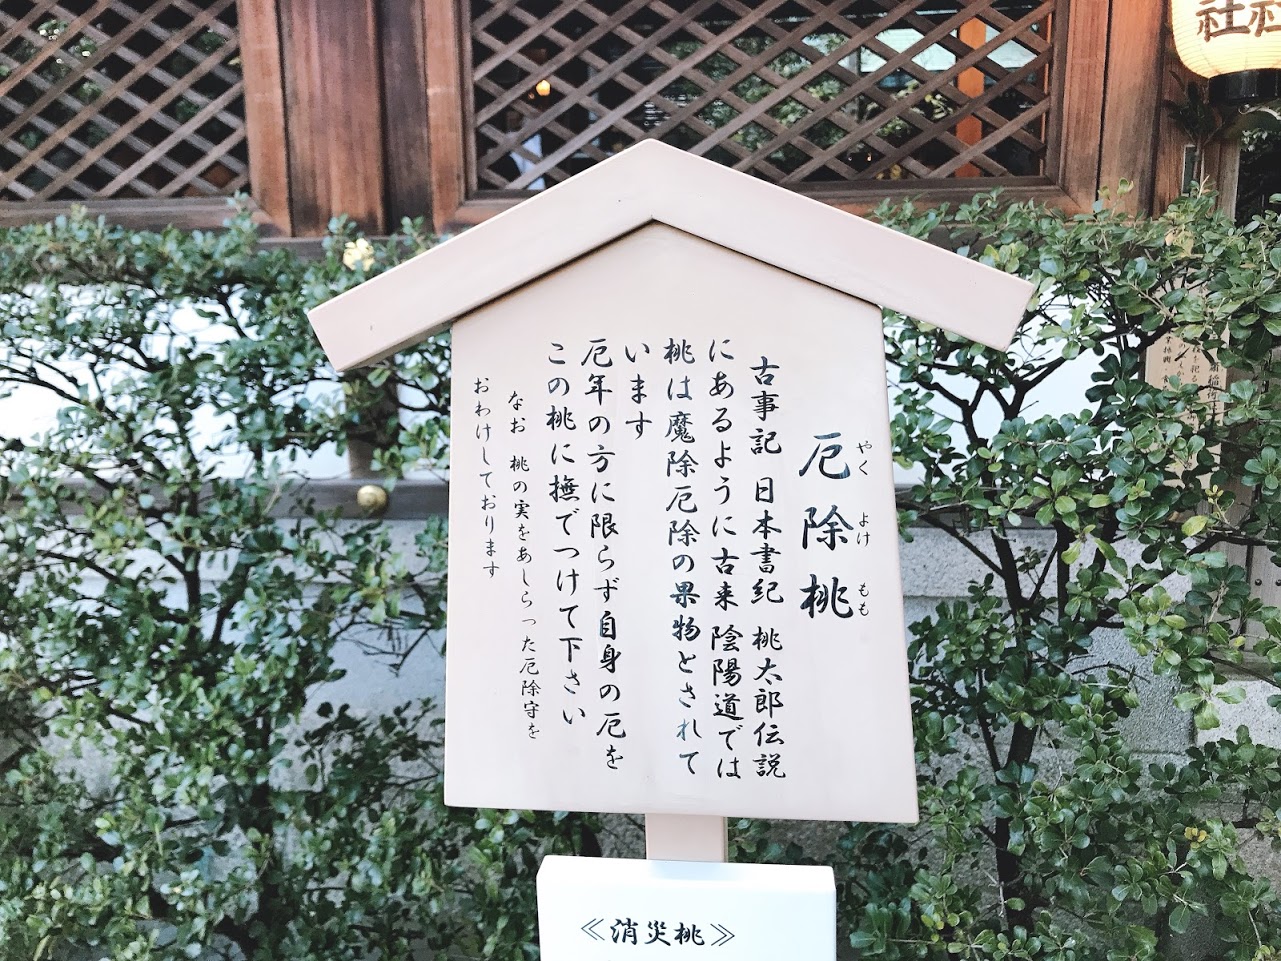 厄除桃
やく よけ もも
古事記 日本書紀 桃太郎伝説
にあるように古来 陰陽道では
桃は魔除厄除の果物とされて
います
厄年の方に限らず自身の厄を
この桃に撫でつけて下さい
なお 桃の実をあしらった厄除守を
おわけしております
≪消災桃≫
社